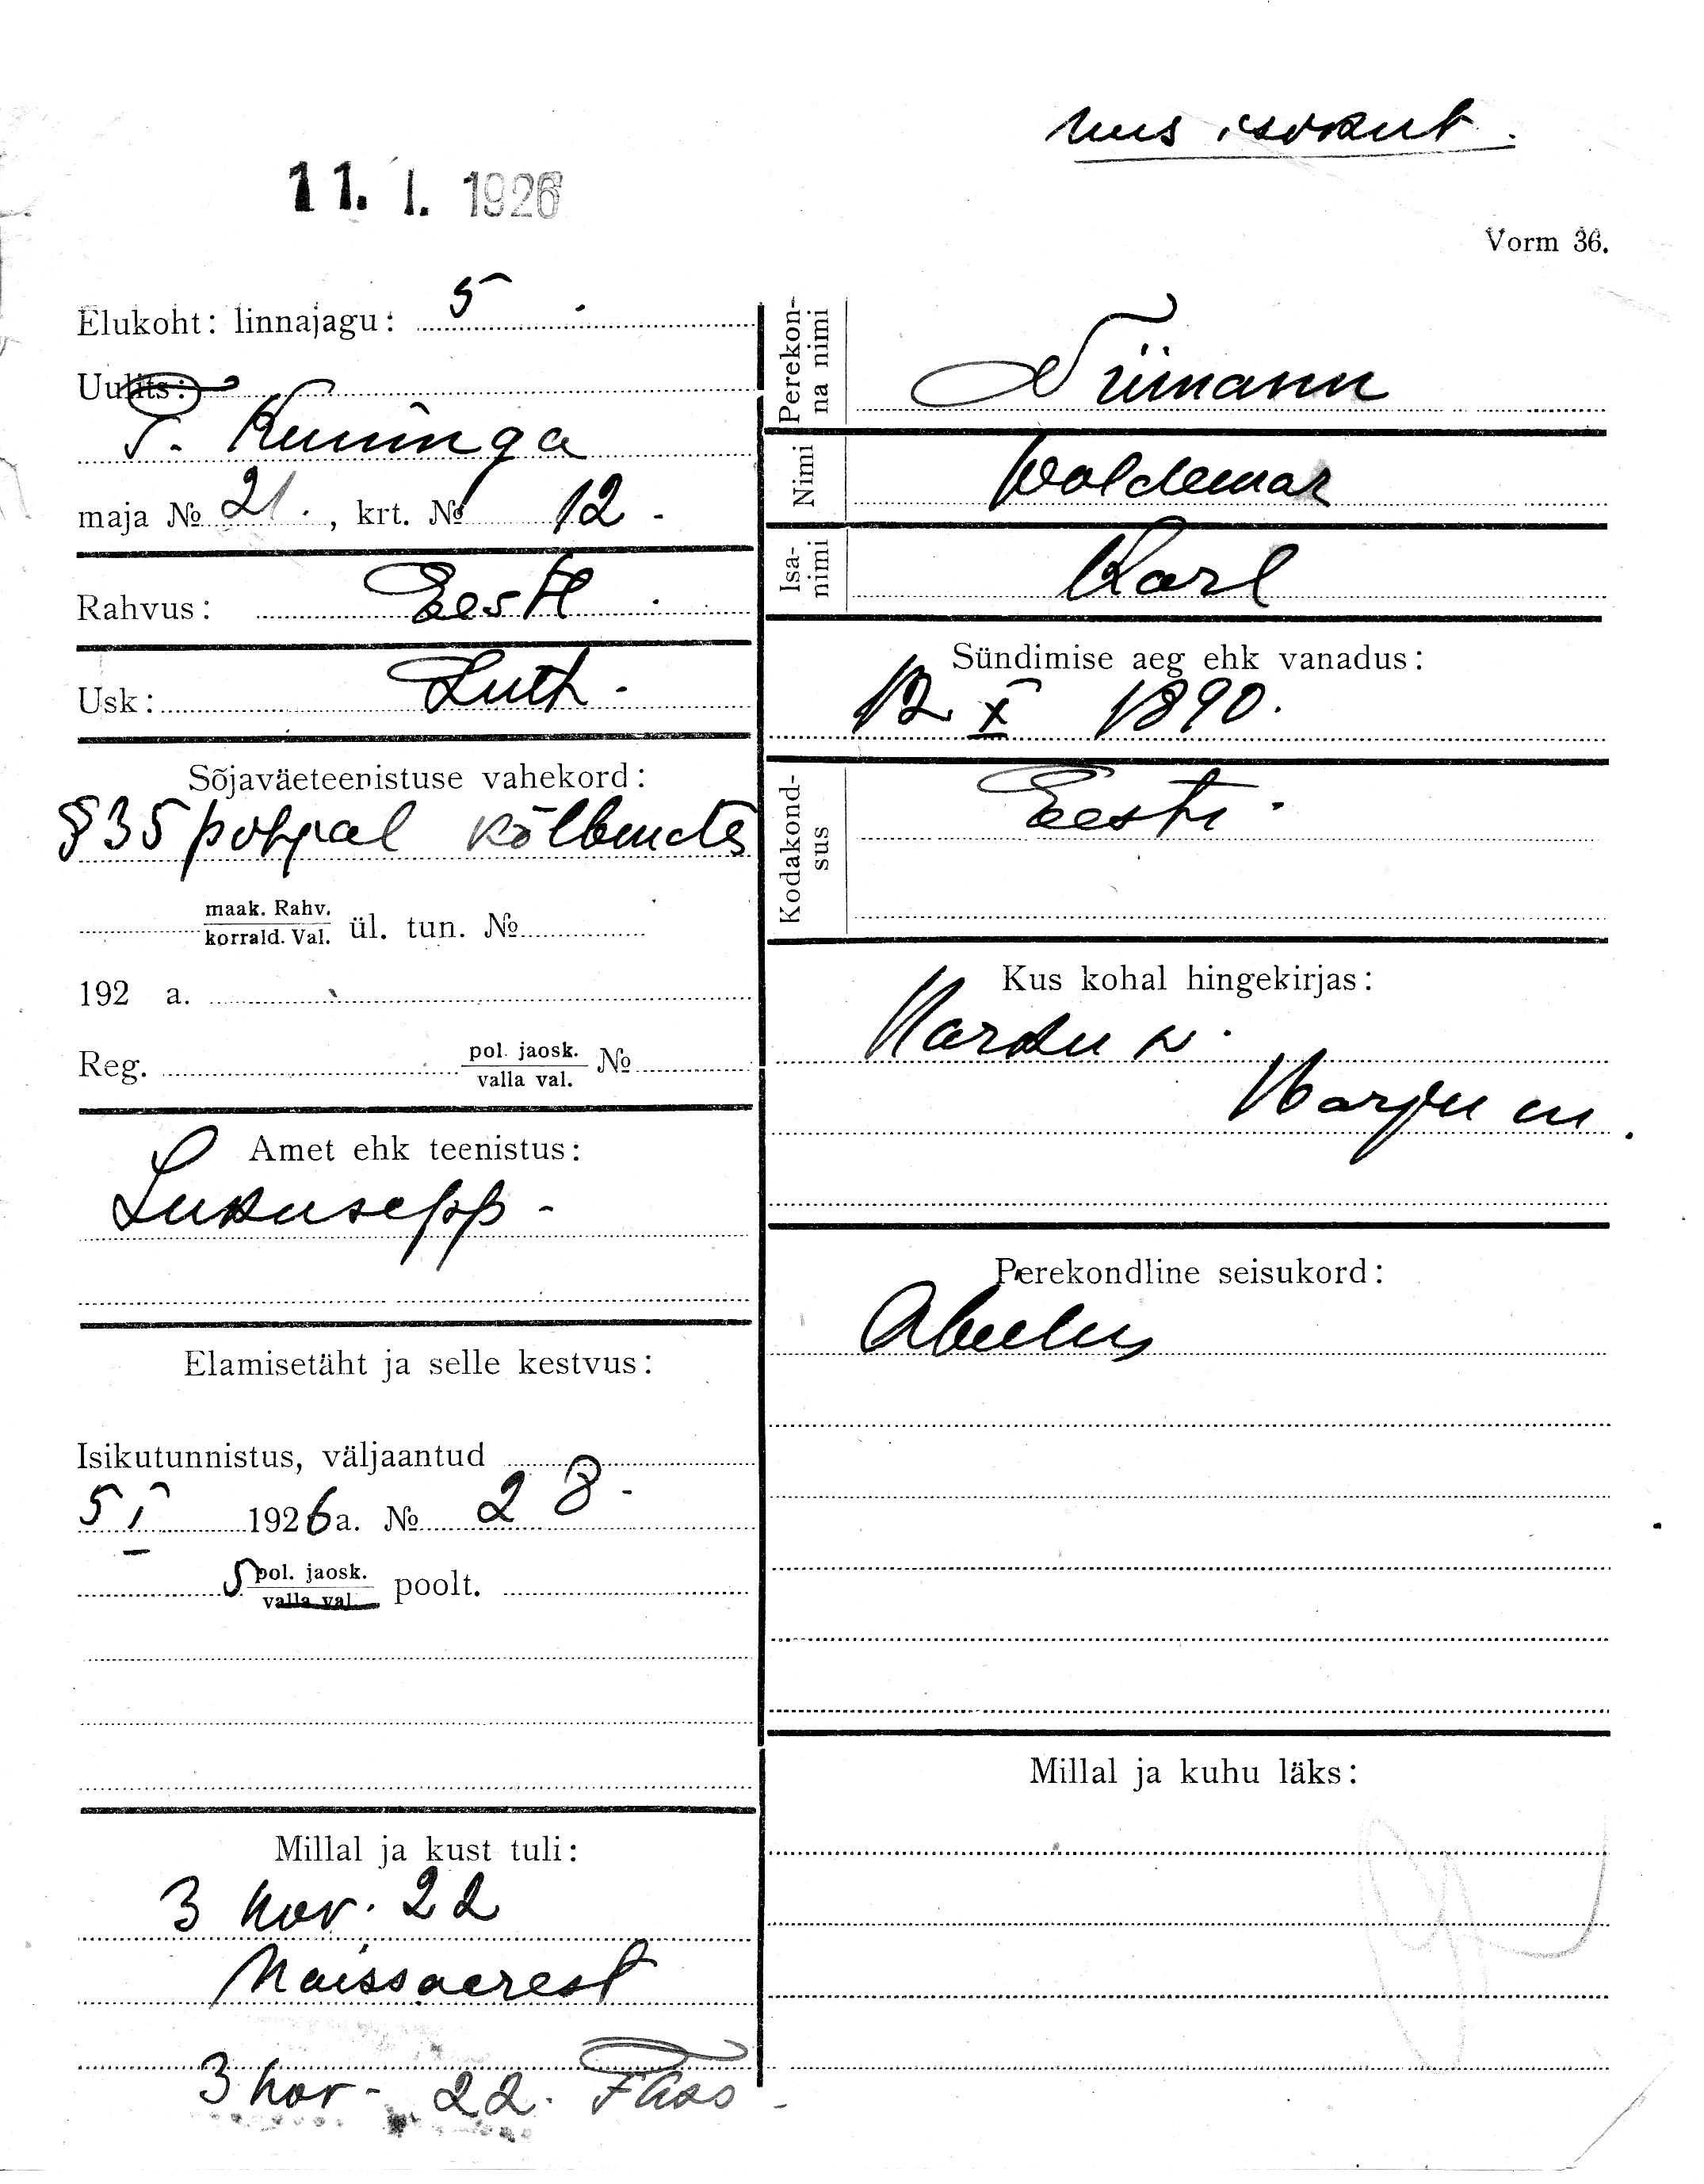 uus isikut.
11. I. 1926
Vorm 36.
Elukoht: linnajagu: 5
Uulits:
T. Kuninga
maja № 21., krt. № 12.
Rahvus: Eesti
Usk: Luth.
Sõjaväeteenistuse vahekord:
§ 35 põhjal kõlbmata
maak. Rahv.
korrald. Val. ül. tun. №
192 a.
Reg. pol. jaosk. №
valla val.
Amet ehk teenistus:
Lukusepp.
Elamisetäht ja selle kestvus:
Isikutunnistus, väljaantud
5 I 1926 a. № 28.
5 pol. jaosk. poolt.
valla val.
Millal ja kust tuli:
3 nov. 22
Naissaarest
3 nov. 22.
Perekonna nimi
Niimann
Nimi
Woldemar
Isanimi
Karl
Sündimise aeg ehk vanadus:
12 X 1890.
Kodakondsus
Eesti.
Kus kohal hingekirjas:
Harku v.
Harju m.
Perekondline seisukord:
Abielus
Millal ja kuhu läks: